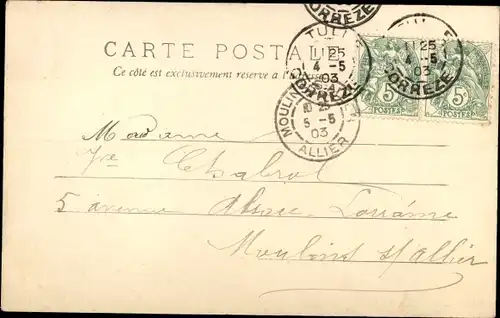 CORREZE
CARTE POSTALE
Ce côté est exclusivement réservé à l'
TULLE
11E 25
4 - 5
03
CORREZE
25
4 - 5
03
CORREZE
5c 5c
POSTES POSTES
MOULINS
10E 25
5 - 5
03
ALLIER
Madame
Vve Chabrol
5 avenue Alsace-Lorraine
Moulins s/ Allier